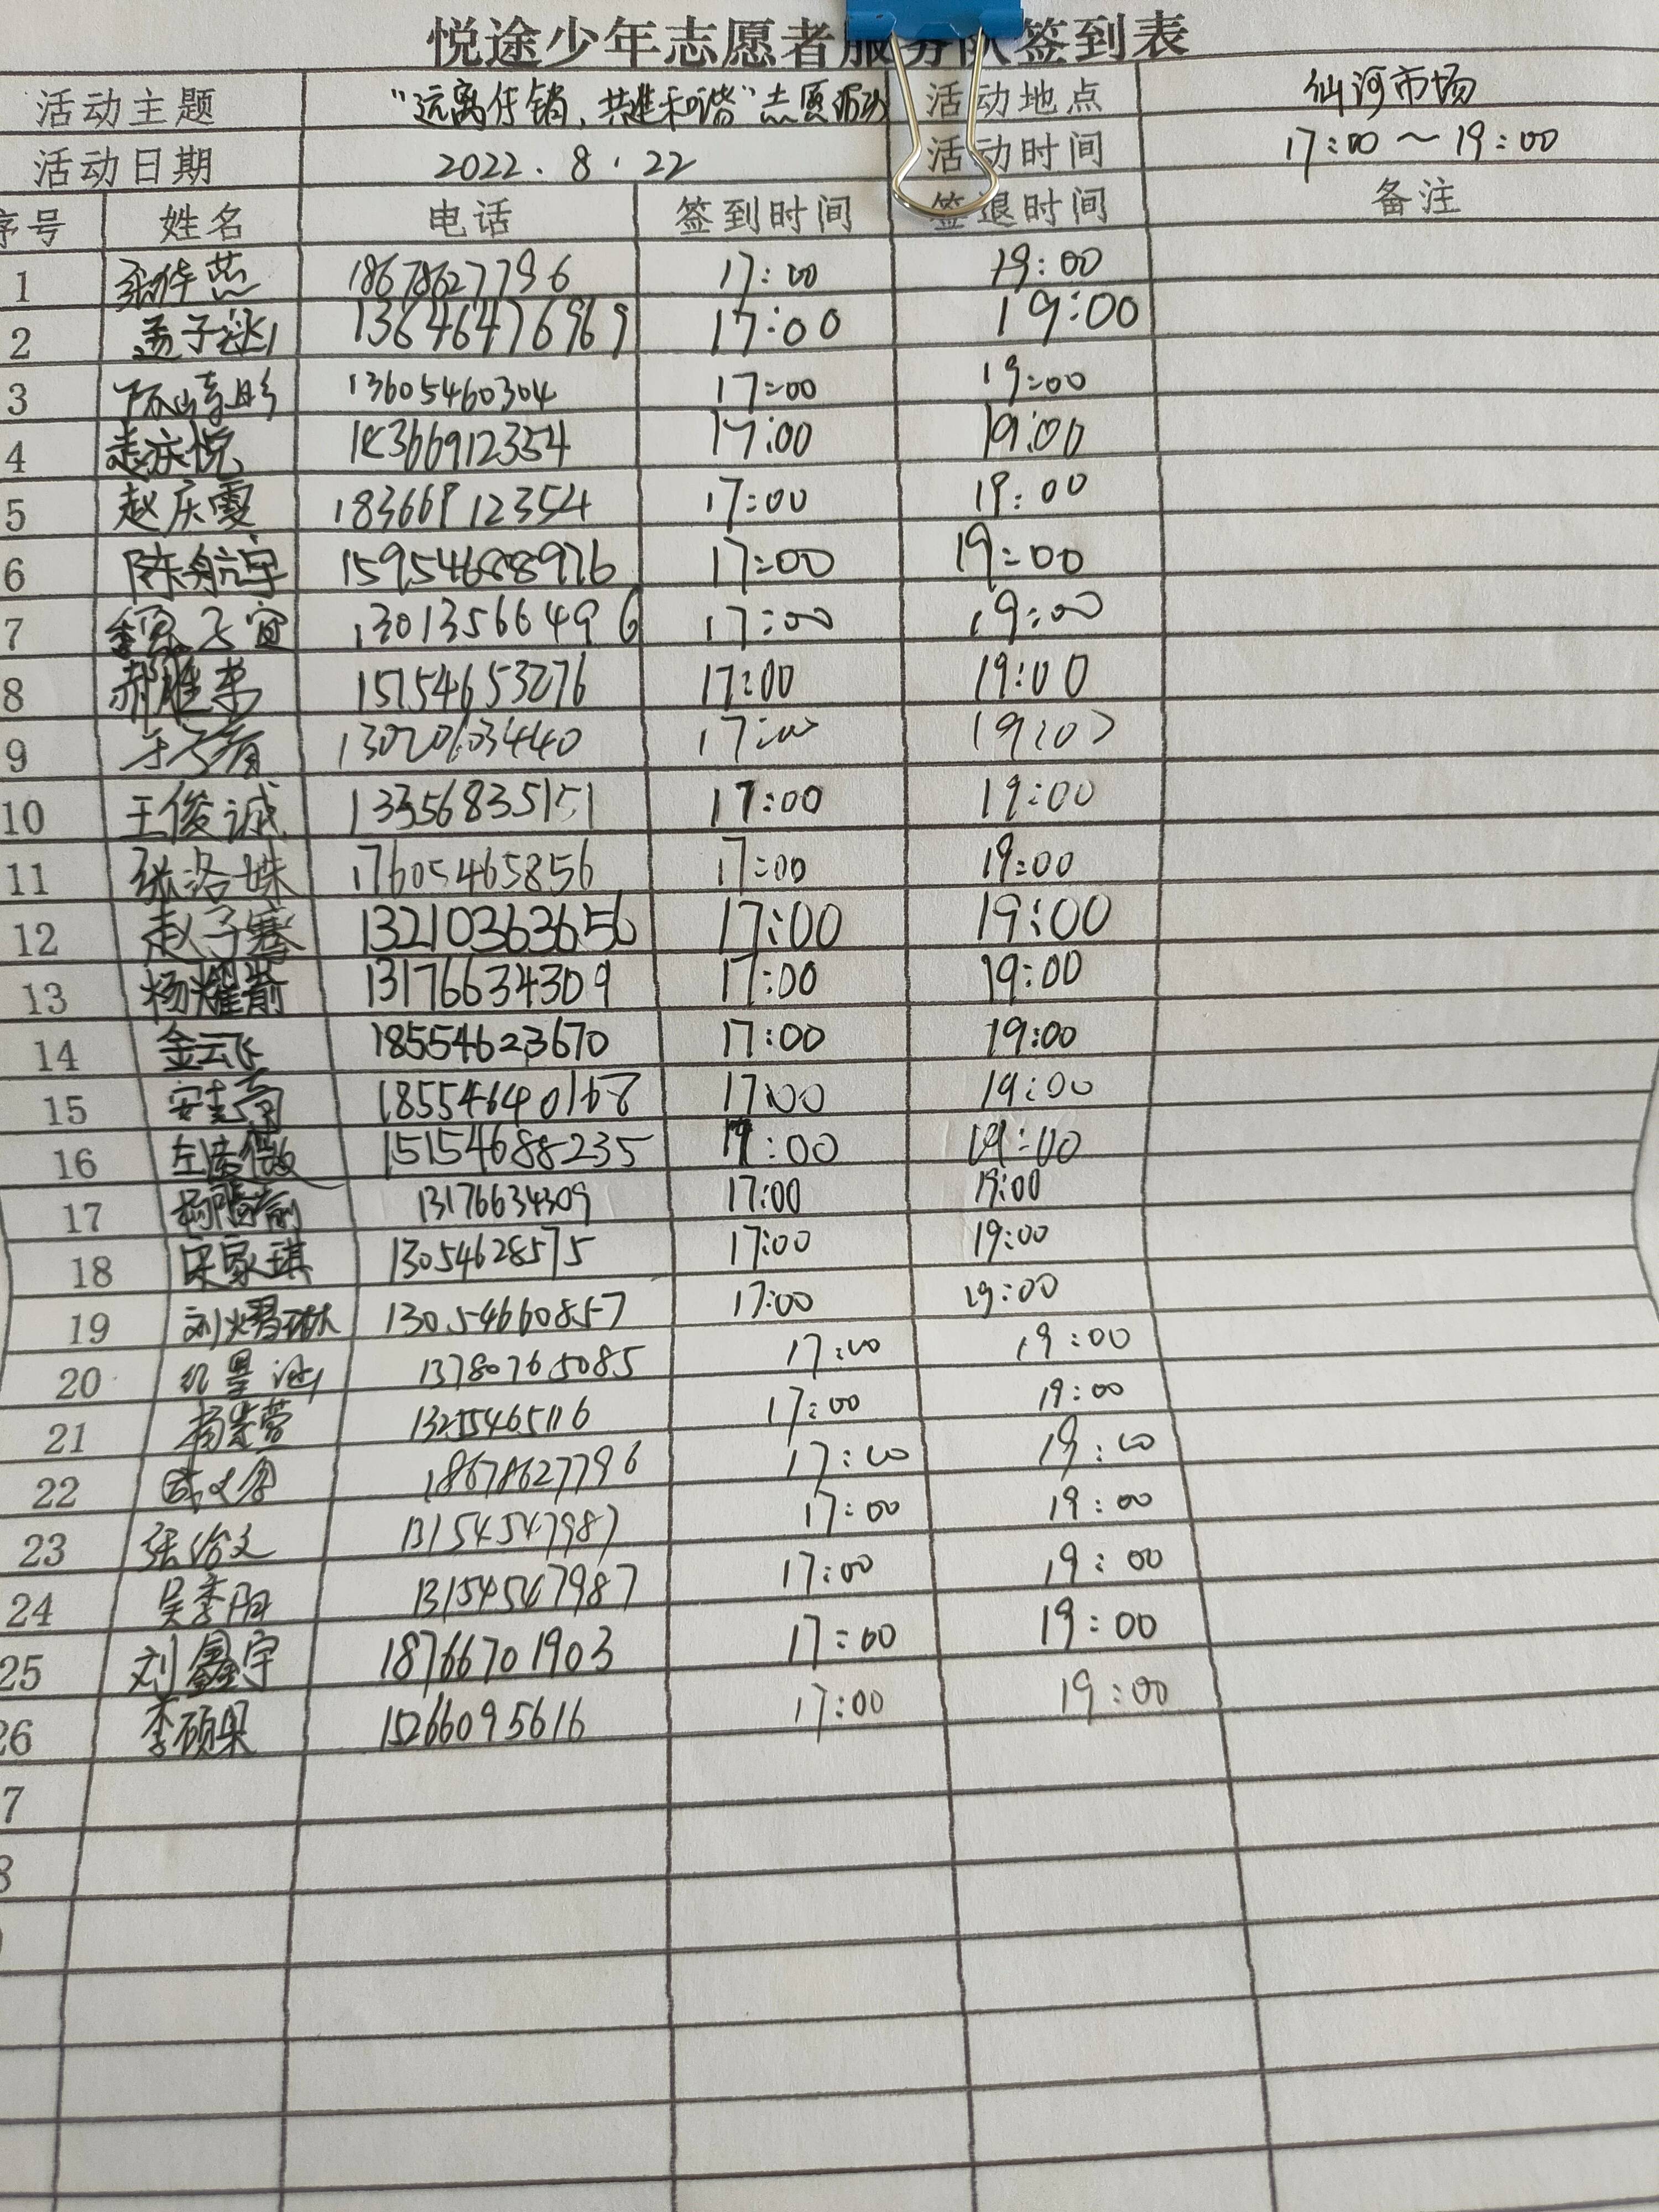 悦途少年志愿者服务队签到表
活动主题 "远离传销、共建和谐"志愿活动 活动地点 仙河市场
活动日期 2022.8.22 活动时间 17:00~19:00
序号 姓名 电话 签到时间 签退时间 备注
1 18678627796 17:00 19:00
2 13646476969 17:00 19:00
3 13605460304 17:00 19:00
4 赵庆悦 18366912354 17:00 19:00
5 赵庆雯 18366912354 17:00 19:00
6 陈航宇 15954688976 17:00 19:00
7 13013566496 17:00 19:00
8 15154653276 17:00 19:00
9 13020603440 17:00 19:00
10 王俊诚 13356835151 17:00 19:00
11 张洛姝 17605465856 17:00 19:00
12 赵子骞 13210363656 17:00 19:00
13 杨耀前 13176634309 17:00 19:00
14 金云飞 18554623670 17:00 19:00
15 18554640168 17:00 19:00
16 15154688235 17:00 19:00
17 13176634309 17:00 19:00
18 宋家琪 13054628575 17:00 19:00
19 刘耀琳 13054660857 17:00 19:00
20 13780765085 17:00 19:00
21 13255465116 17:00 19:00
22 18678627796 17:00 19:00
23 13154547987 17:00 19:00
24 吴李阳 13154547987 17:00 19:00
25 刘鑫宇 18766701903 17:00 19:00
26 李硕果 15266095616 17:00 19:00
7
8